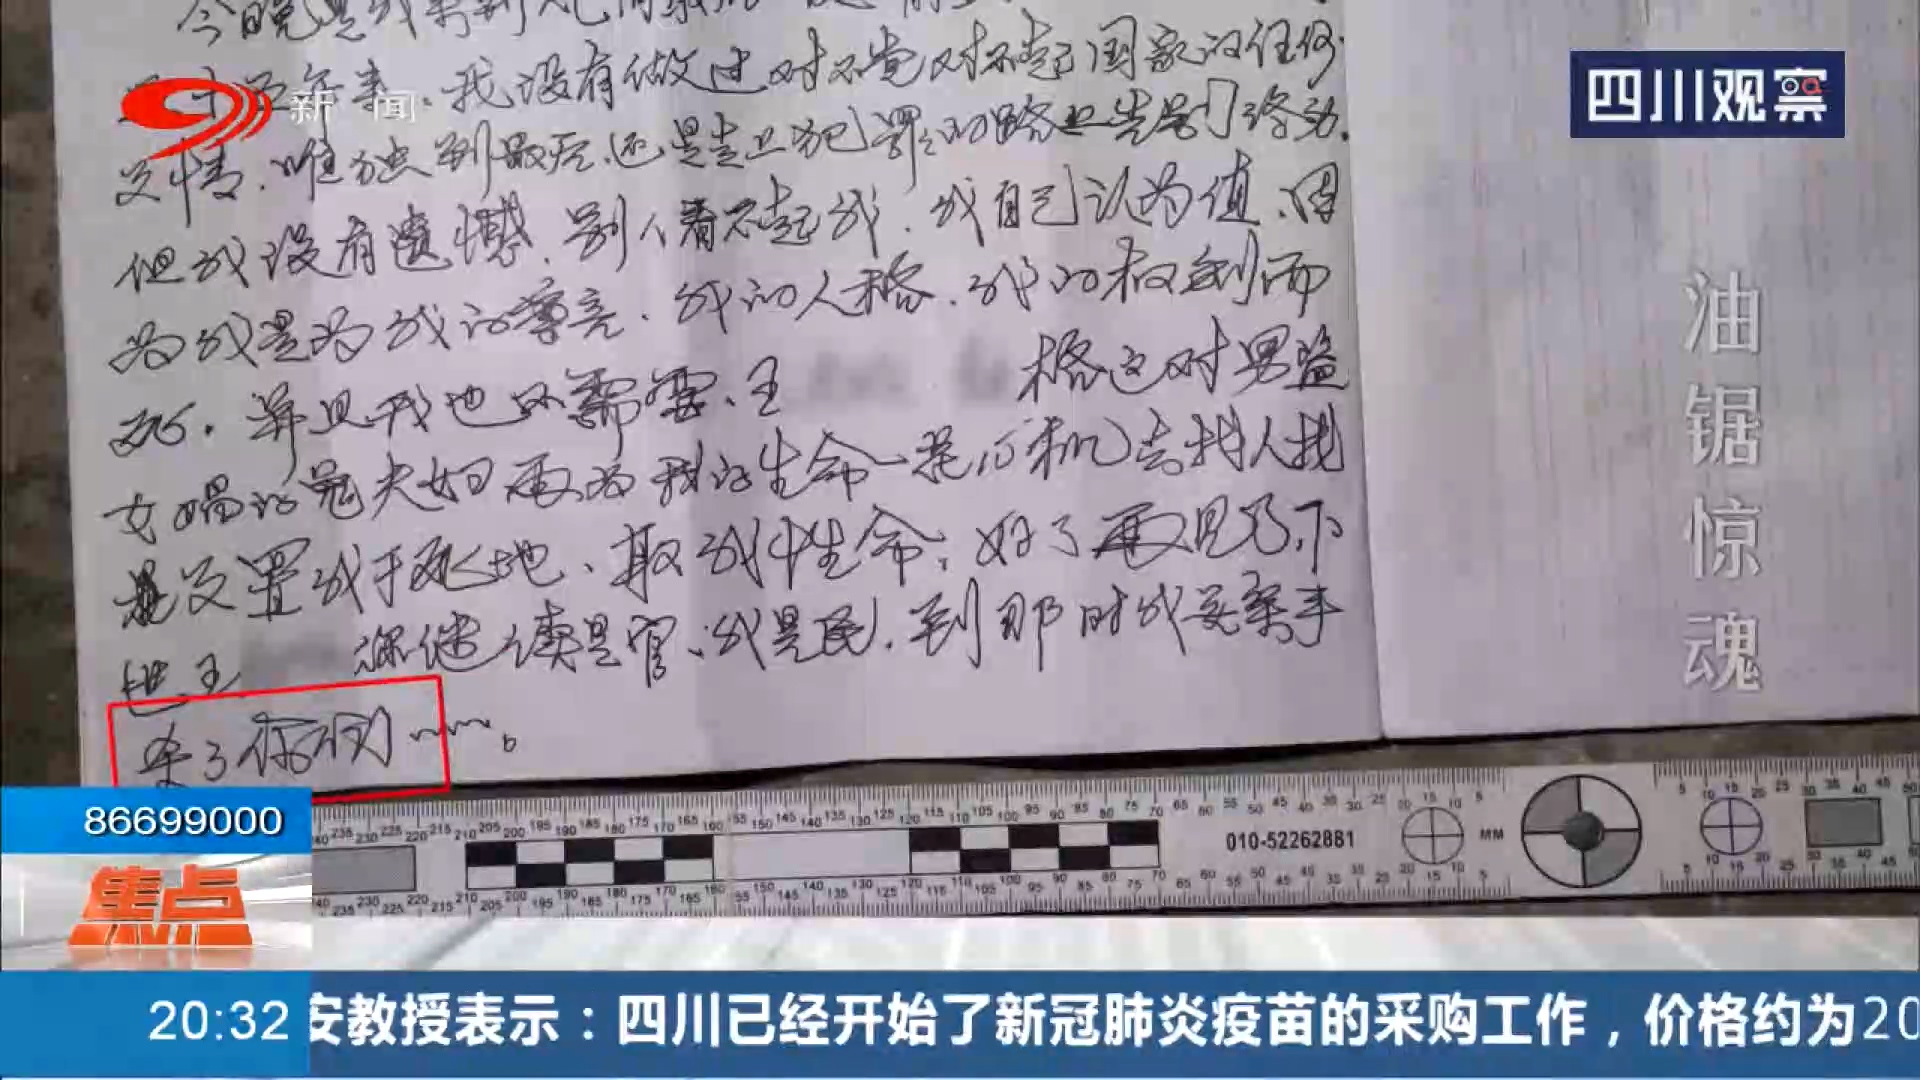 四川观察
新闻
今晚是我来到人
五十多年来、我没有做过对不党对不起国家的任何
文情、唯独到最后还是走上犯罪的路上告别终身、
但我没有遗憾、别人看不起我、我自己认为值、因
为我是为我的尊严、我的人格、我的权利而
死。并且我也不需要、王 格这对男盗
女娼的冤夫妇再为我的生命一是 机去找人找
是没置我于死地、取我件生命；好了再见了、下
世王 你继续是官、我是民、到那时我要亲手
杀了你们……。
油锯惊魂
010-52262881
MM
86699000
焦点
20:32
安教授表示：四川已经开始了新冠肺炎疫苗的采购工作，价格约为20